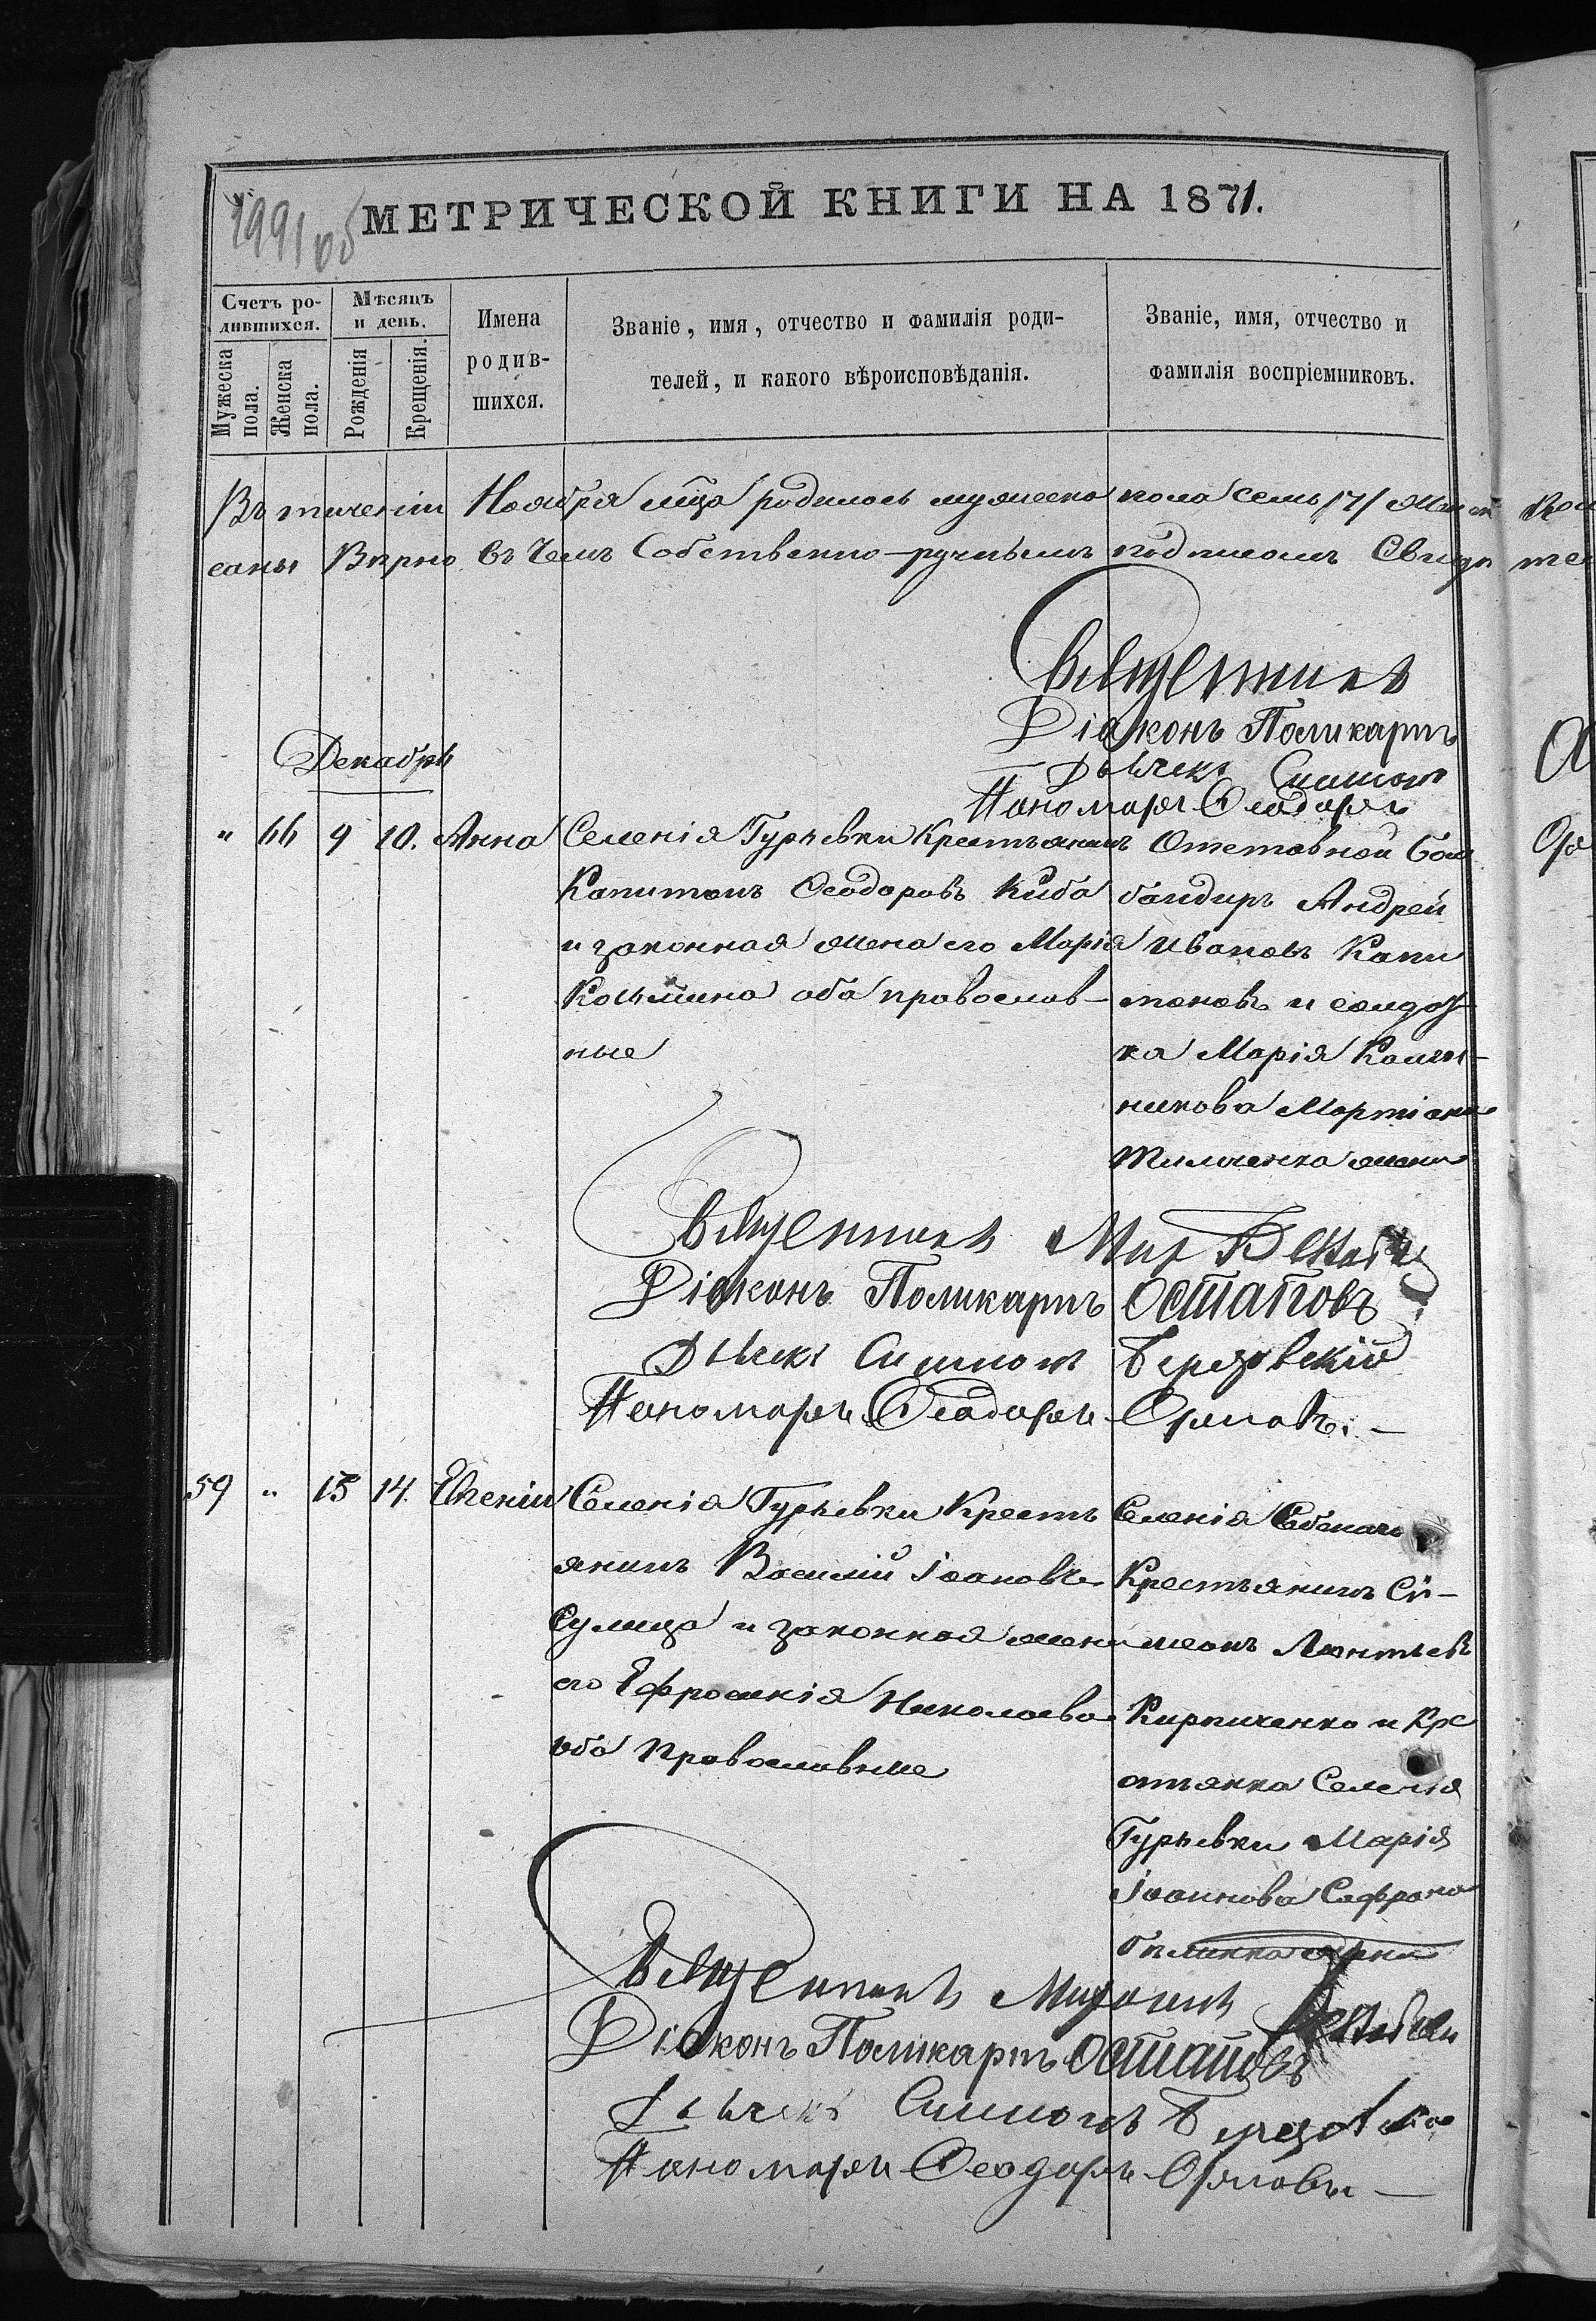 1991 об
МЕТРИЧЕСКОЙ КНИГИ НА 1871.
Счетъ ро-
дившихся.
Мужеска
пола.
Женска
пола.
Мѣсяцъ
и день.
Рожденія
Крещенія.
Имена
родив-
шихся.
Званіе, имя, отчество и фамилія роди-
телей, и какого вѣроисповѣданія.
Званіе, имя, отчество и
фамилія воспріемниковъ.
Въ теченіи Ноября мца родилось мужеска пола семь /7/
саны Вѣрно въ чемъ Собственно-ручнымъ подписомъ Свидѣ
Священникъ
Діаконъ Поликарпъ
Дьячекъ Симеонъ
Пономарь Ѳеодоръ
Декабрь
" 66 9 10. Анна
Селенія Гурьевки Крестьянинъ
Капитонъ Ѳеодоровъ Киба
и законная жена его Марія
Косьмина оба православ-
ные
Отставной Бом
бандиръ Андрей
Ивановъ Капи
тановъ и солдат-
ка Марія
никова Мартіана
жена
Священникъ Мир
Діаконъ Поликарпъ Остаповъ
Дьячекъ Симеонъ Березовскій
Пономарь Ѳеодоръ Орловъ. —
59 " 13 14. Евгеній
Селенія Гурьевки Кресть
янинъ Василій Іоановъ
Сулица и законная жена
его Ефросинія Николаева
оба Православные
Селенія
Крестьянинъ Си-
меонъ Леонтьевъ
Кирпиченко и Кре
стьянка Селенія
Гурьевки Марія
Іоаннова Сафроно
Священникъ Миронъ
Діаконъ Поликарпъ Остаповъ
Дьячекъ Симеонъ Березовскій
Пономарь Ѳеодоръ Орловъ —